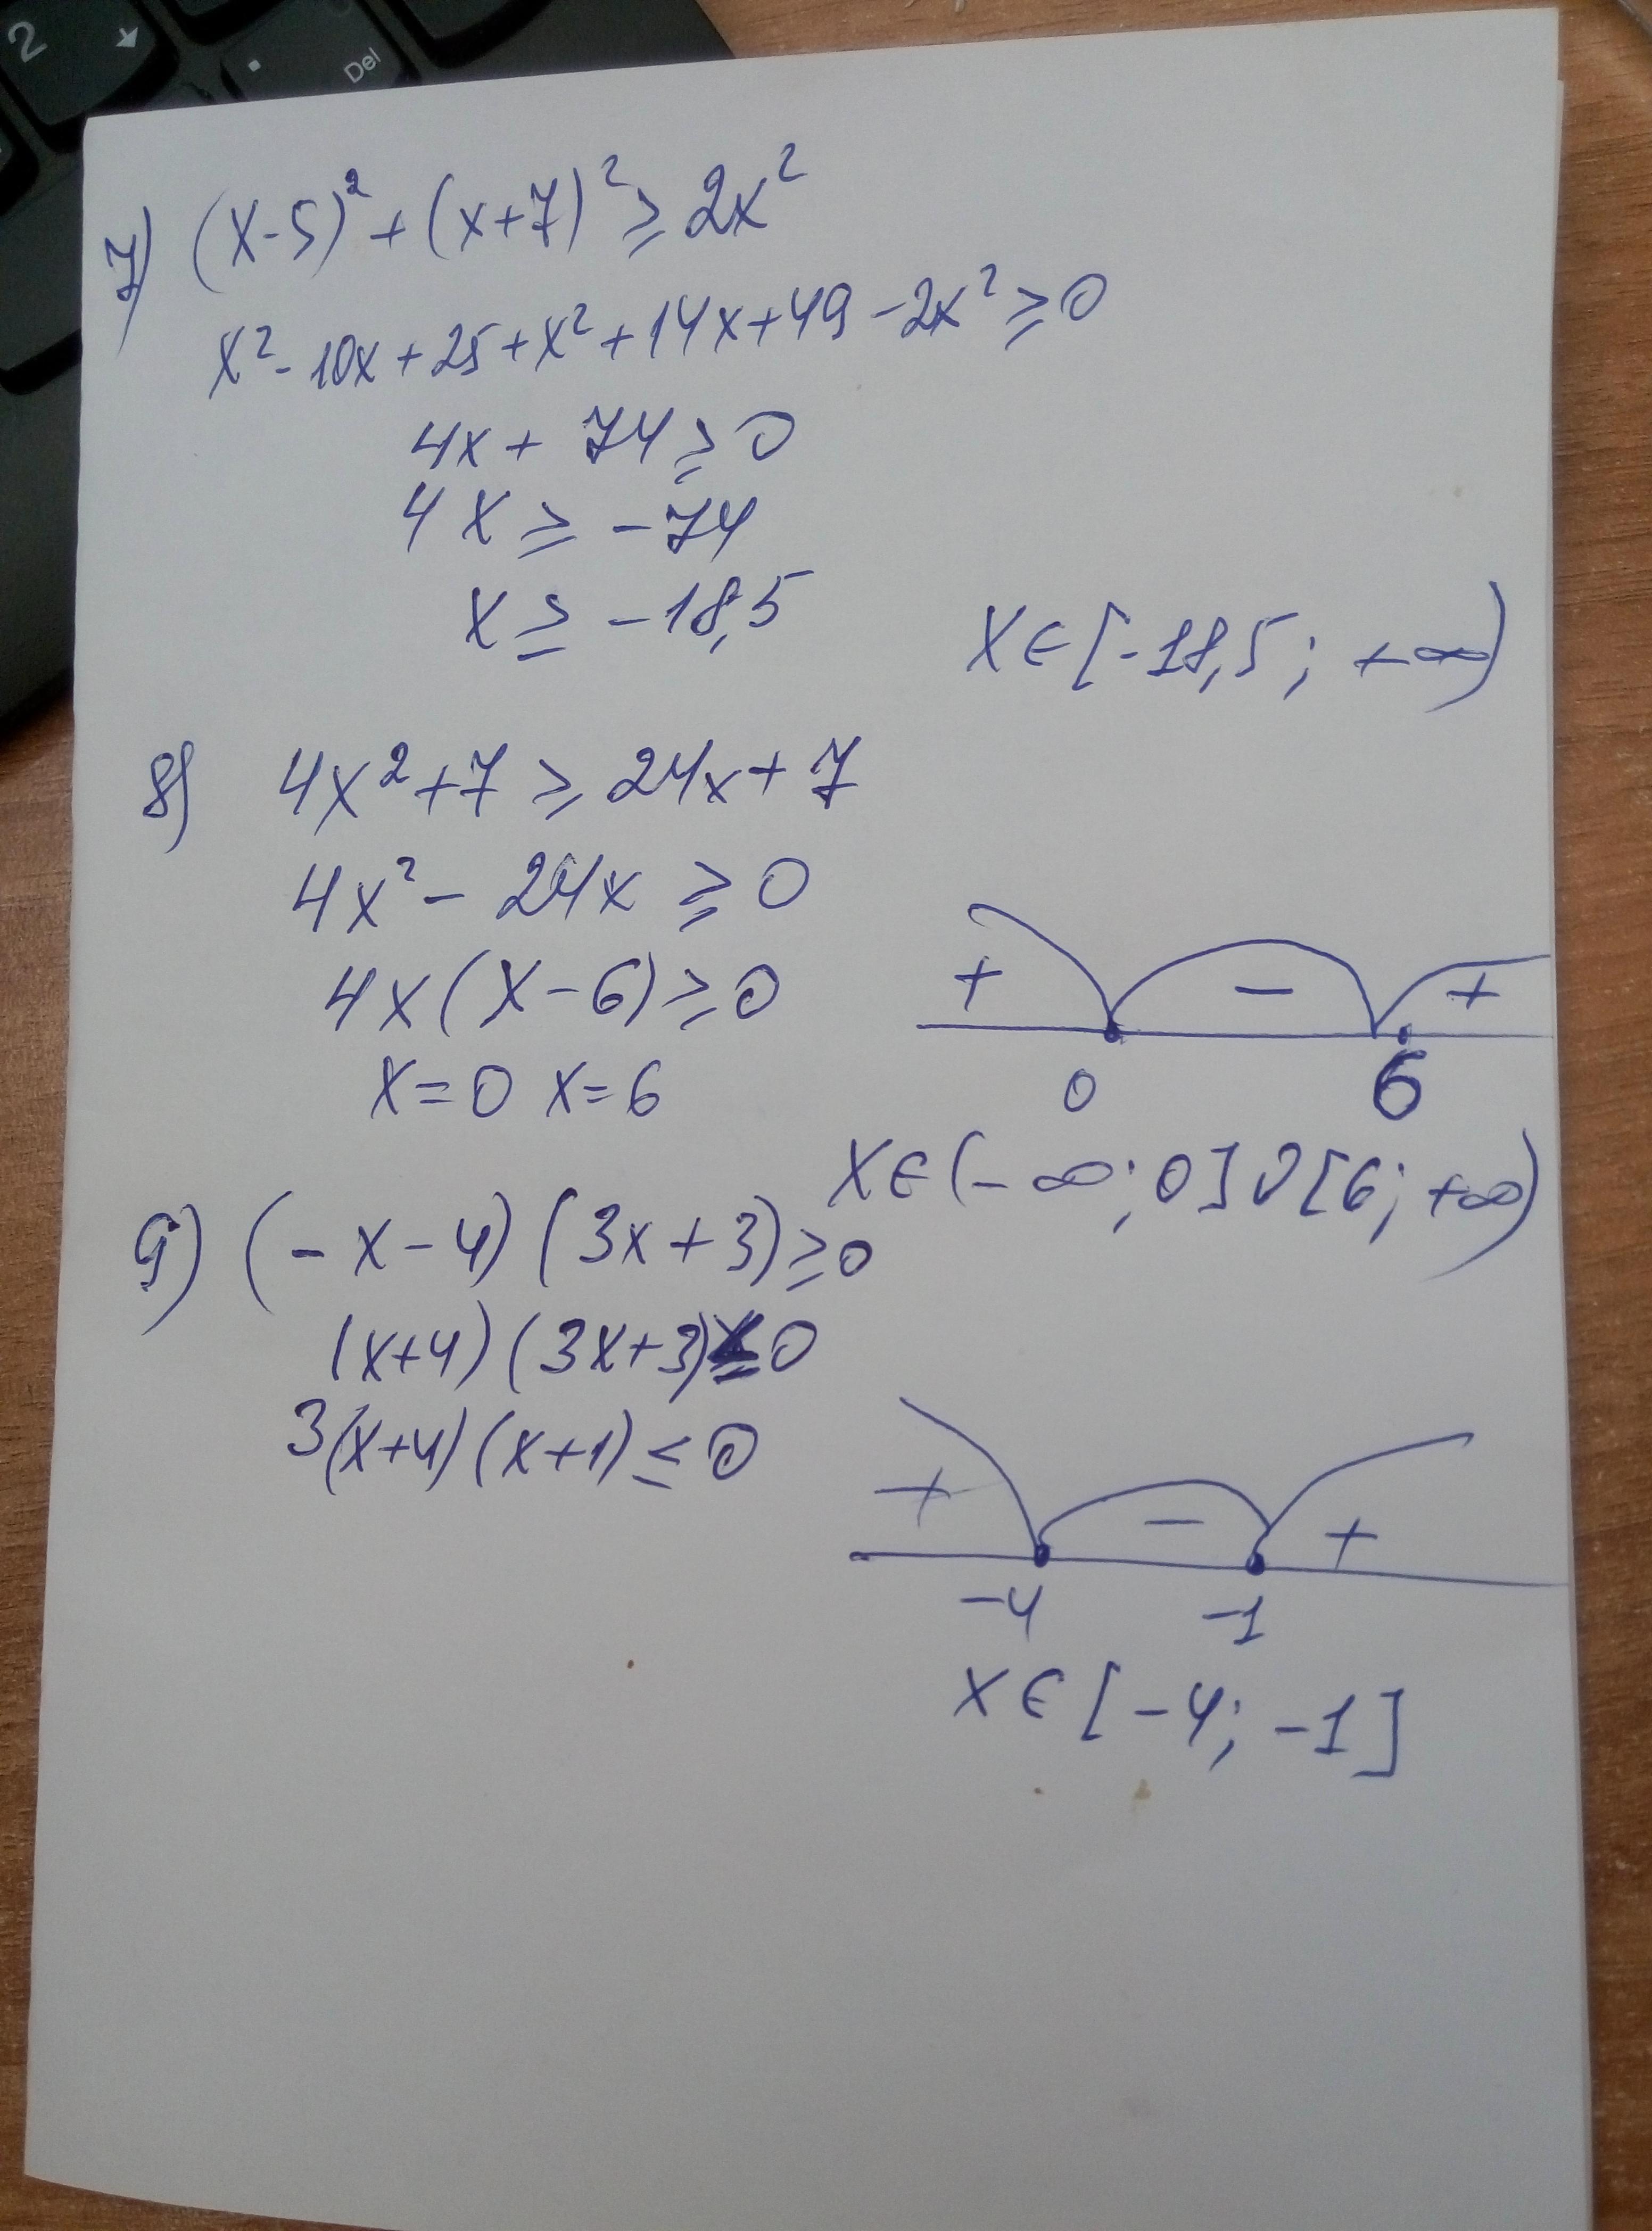 2
.
Del
7) (x-5)² + (x+7)² ≥ 2x²
x² - 10x + 25 + x² + 14x + 49 - 2x² ≥ 0
4x + 74 ≥ 0
4x ≥ -74
x ≥ -18,5
x ∈ [-18,5; +∞)
8) 4x² + 7 ≥ 24x + 7
4x² - 24x ≥ 0
4x(x-6) ≥ 0
x=0 x=6
+ - +
0 6
x ∈ (-∞; 0] ∪ [6; +∞)
9) (-x-4)(3x+3) ≥ 0
(x+4)(3x+3) ≤ 0
3(x+4)(x+1) ≤ 0
+ - +
-4 -1
x ∈ [-4; -1]